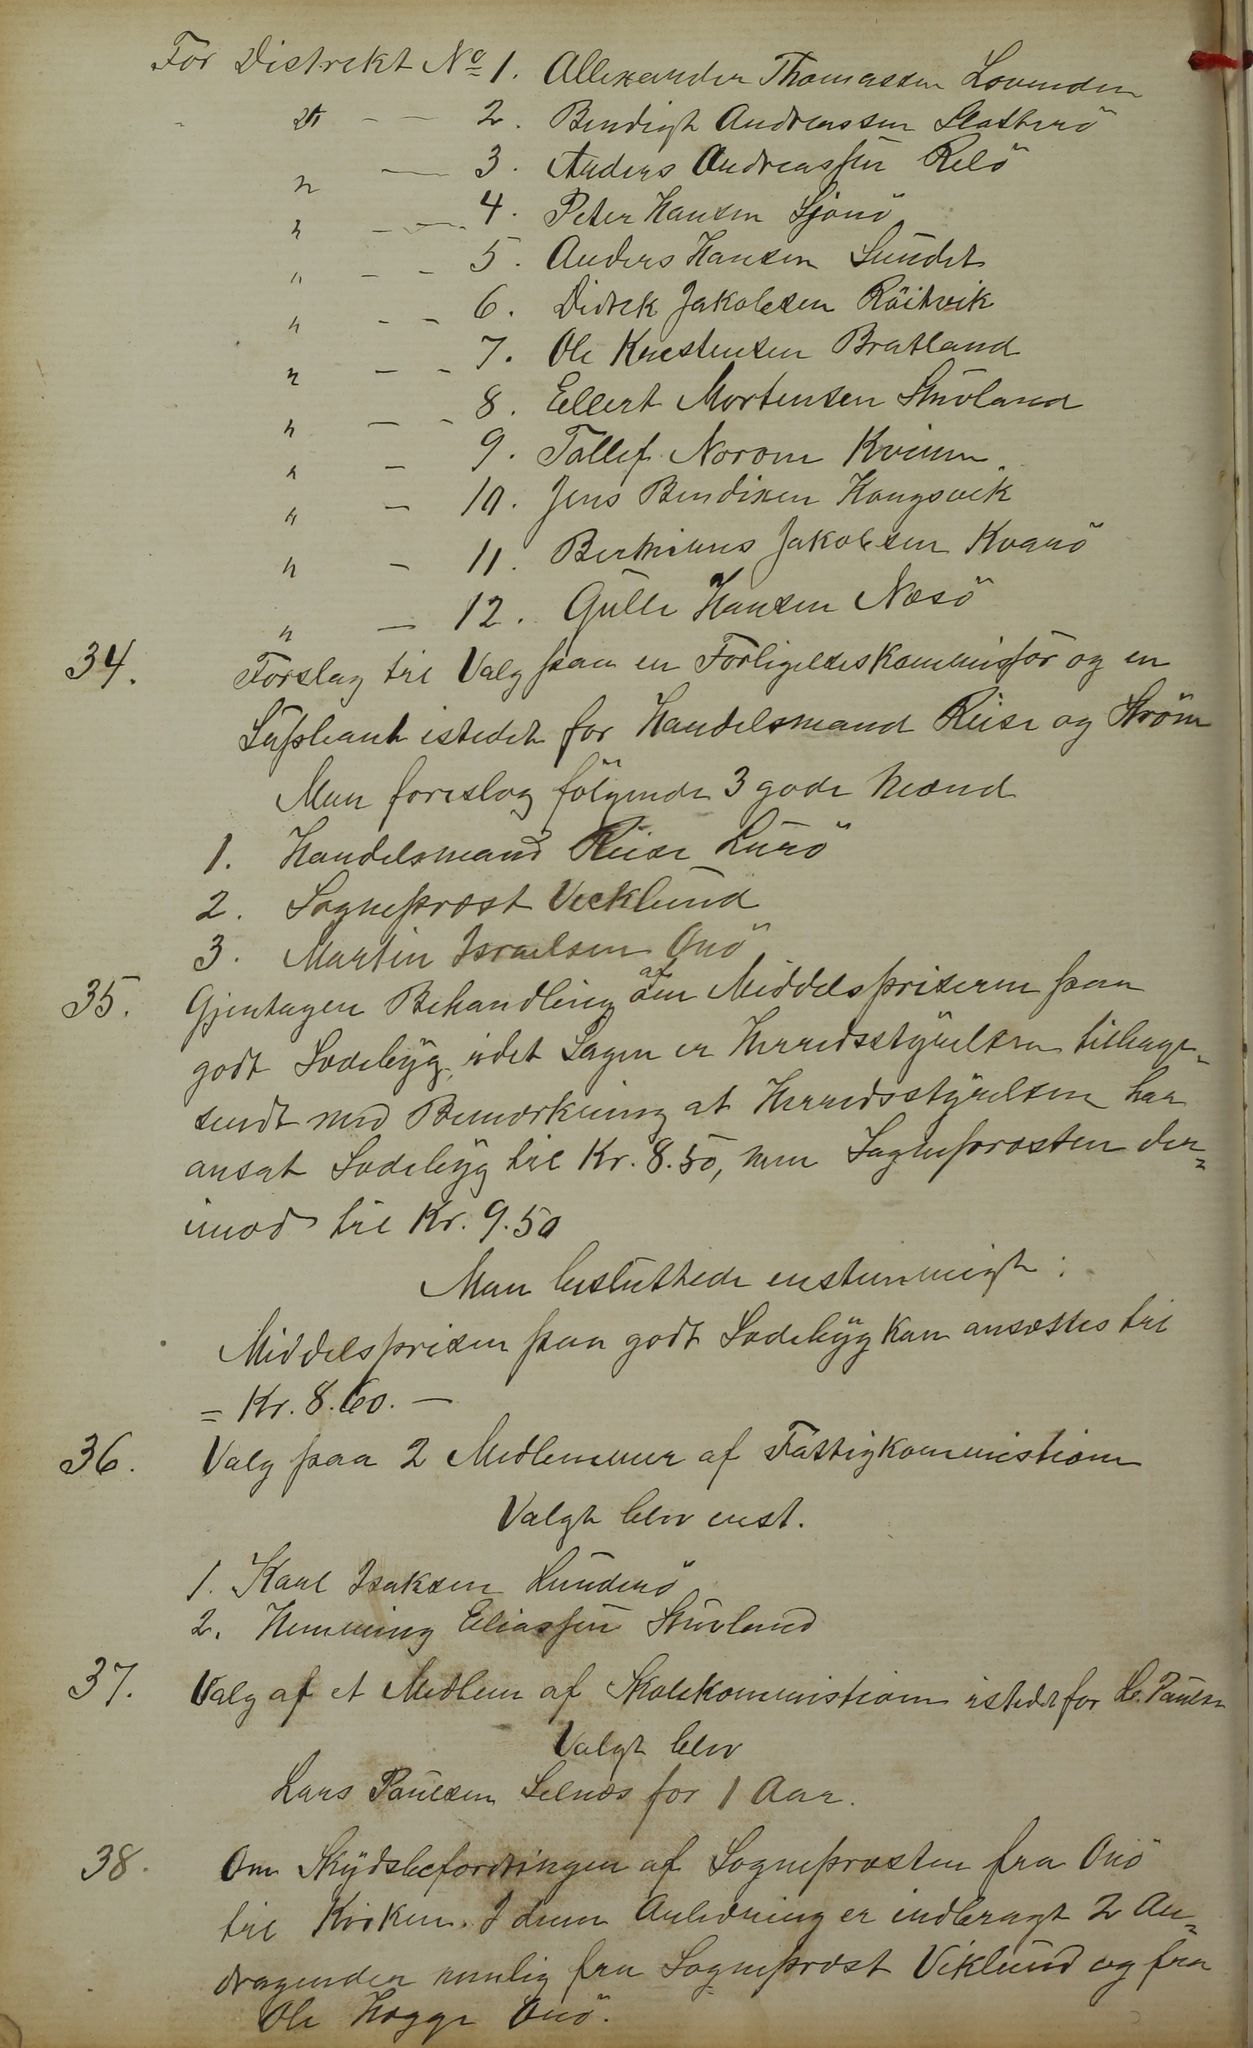 For Distrekt No 1. Allexander Thomassen Lovunden
" — — 2. Bendigt Andreassen Sleotherö
" — 3. Anders Andreassen Relö
" — — 4. Peter Hansen Sjonö
" — — 5. Anders Hansen Sundet
" — — 6. Didrek Jakobsen Röitvik
" — — 7. Ole Krestensen Bratland
" — — 8. Ellert Mortensen Stuvland
" — 9. Tollef Norom Kvinen
" — 10. Jens Bendixen Kongsvik
" — 11. Berthinus Jakobsen Kvarö
" — 12. Gulle Hansen Nesö
34. Forslag til Valg paa en Forligelseskommissør og en
Supleant istedet for Handelsmand Riise og Ström
Man foreslog fölgende 3 gode Mænd
1. Handelsmand Riise Lurö
2. Sognepræst Vecklund
3. Martin Israelsen Onö
35. Gjentagen Behandling af Middelsprisern paa
godt Sædebyg, idet Sagen er Herredsstyrelsen tilbage-
sendt med Bemærkning at Herredsstyrelsen har
ansat Sædebyg til Kr. 8.50, men Sognepræsten der=
imod til Kr. 9.50
Man besluttede enstemmigt:
Middelsprisen paa godt Sædebyg kan ansættes til
= Kr. 8.60. —
36. Valg paa 2 Medlemmer af Fattigkommistionen
Valgt blev enst.
1. Karl Isaksen Hunderö
2. Hemming Eliassen Stuvland
37. Valg af et Medlem af Skolekommistionen istedetfor L. Paulsen
Valgt blev
Lars Paulsen Selnæs for 1 Aar.
38. Om Skydsbefordringen af Sognepræsten fra Onö
til Kirken. I denne Anledning er indbragt 2 An=
dragender nemlig fra Sognepræst Viklund og fra
Ole Hagge Onö.